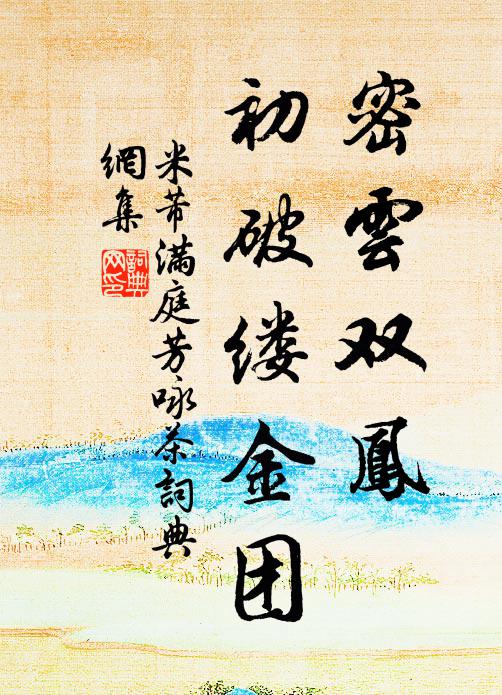 密雲双鳳
初破缕金团
米芾满庭芳咏茶詞典
網集
詞典
网印